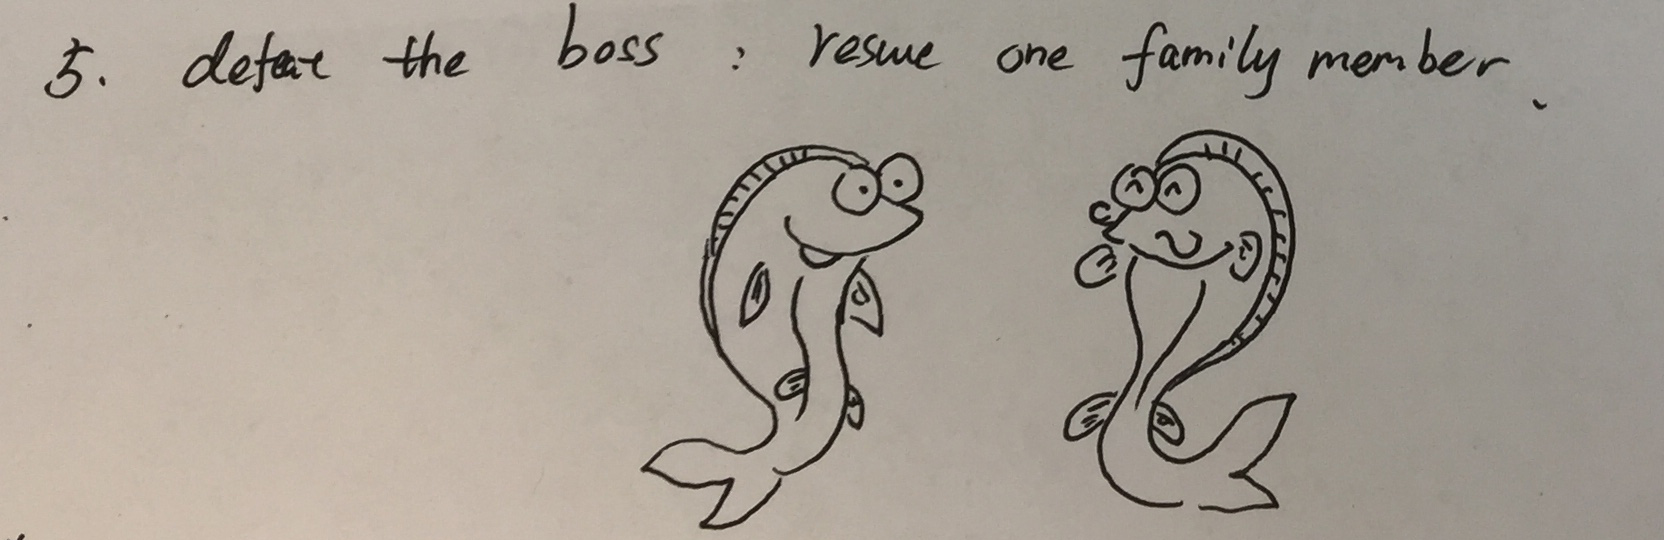 5. defeat the boss : resuve one family member.